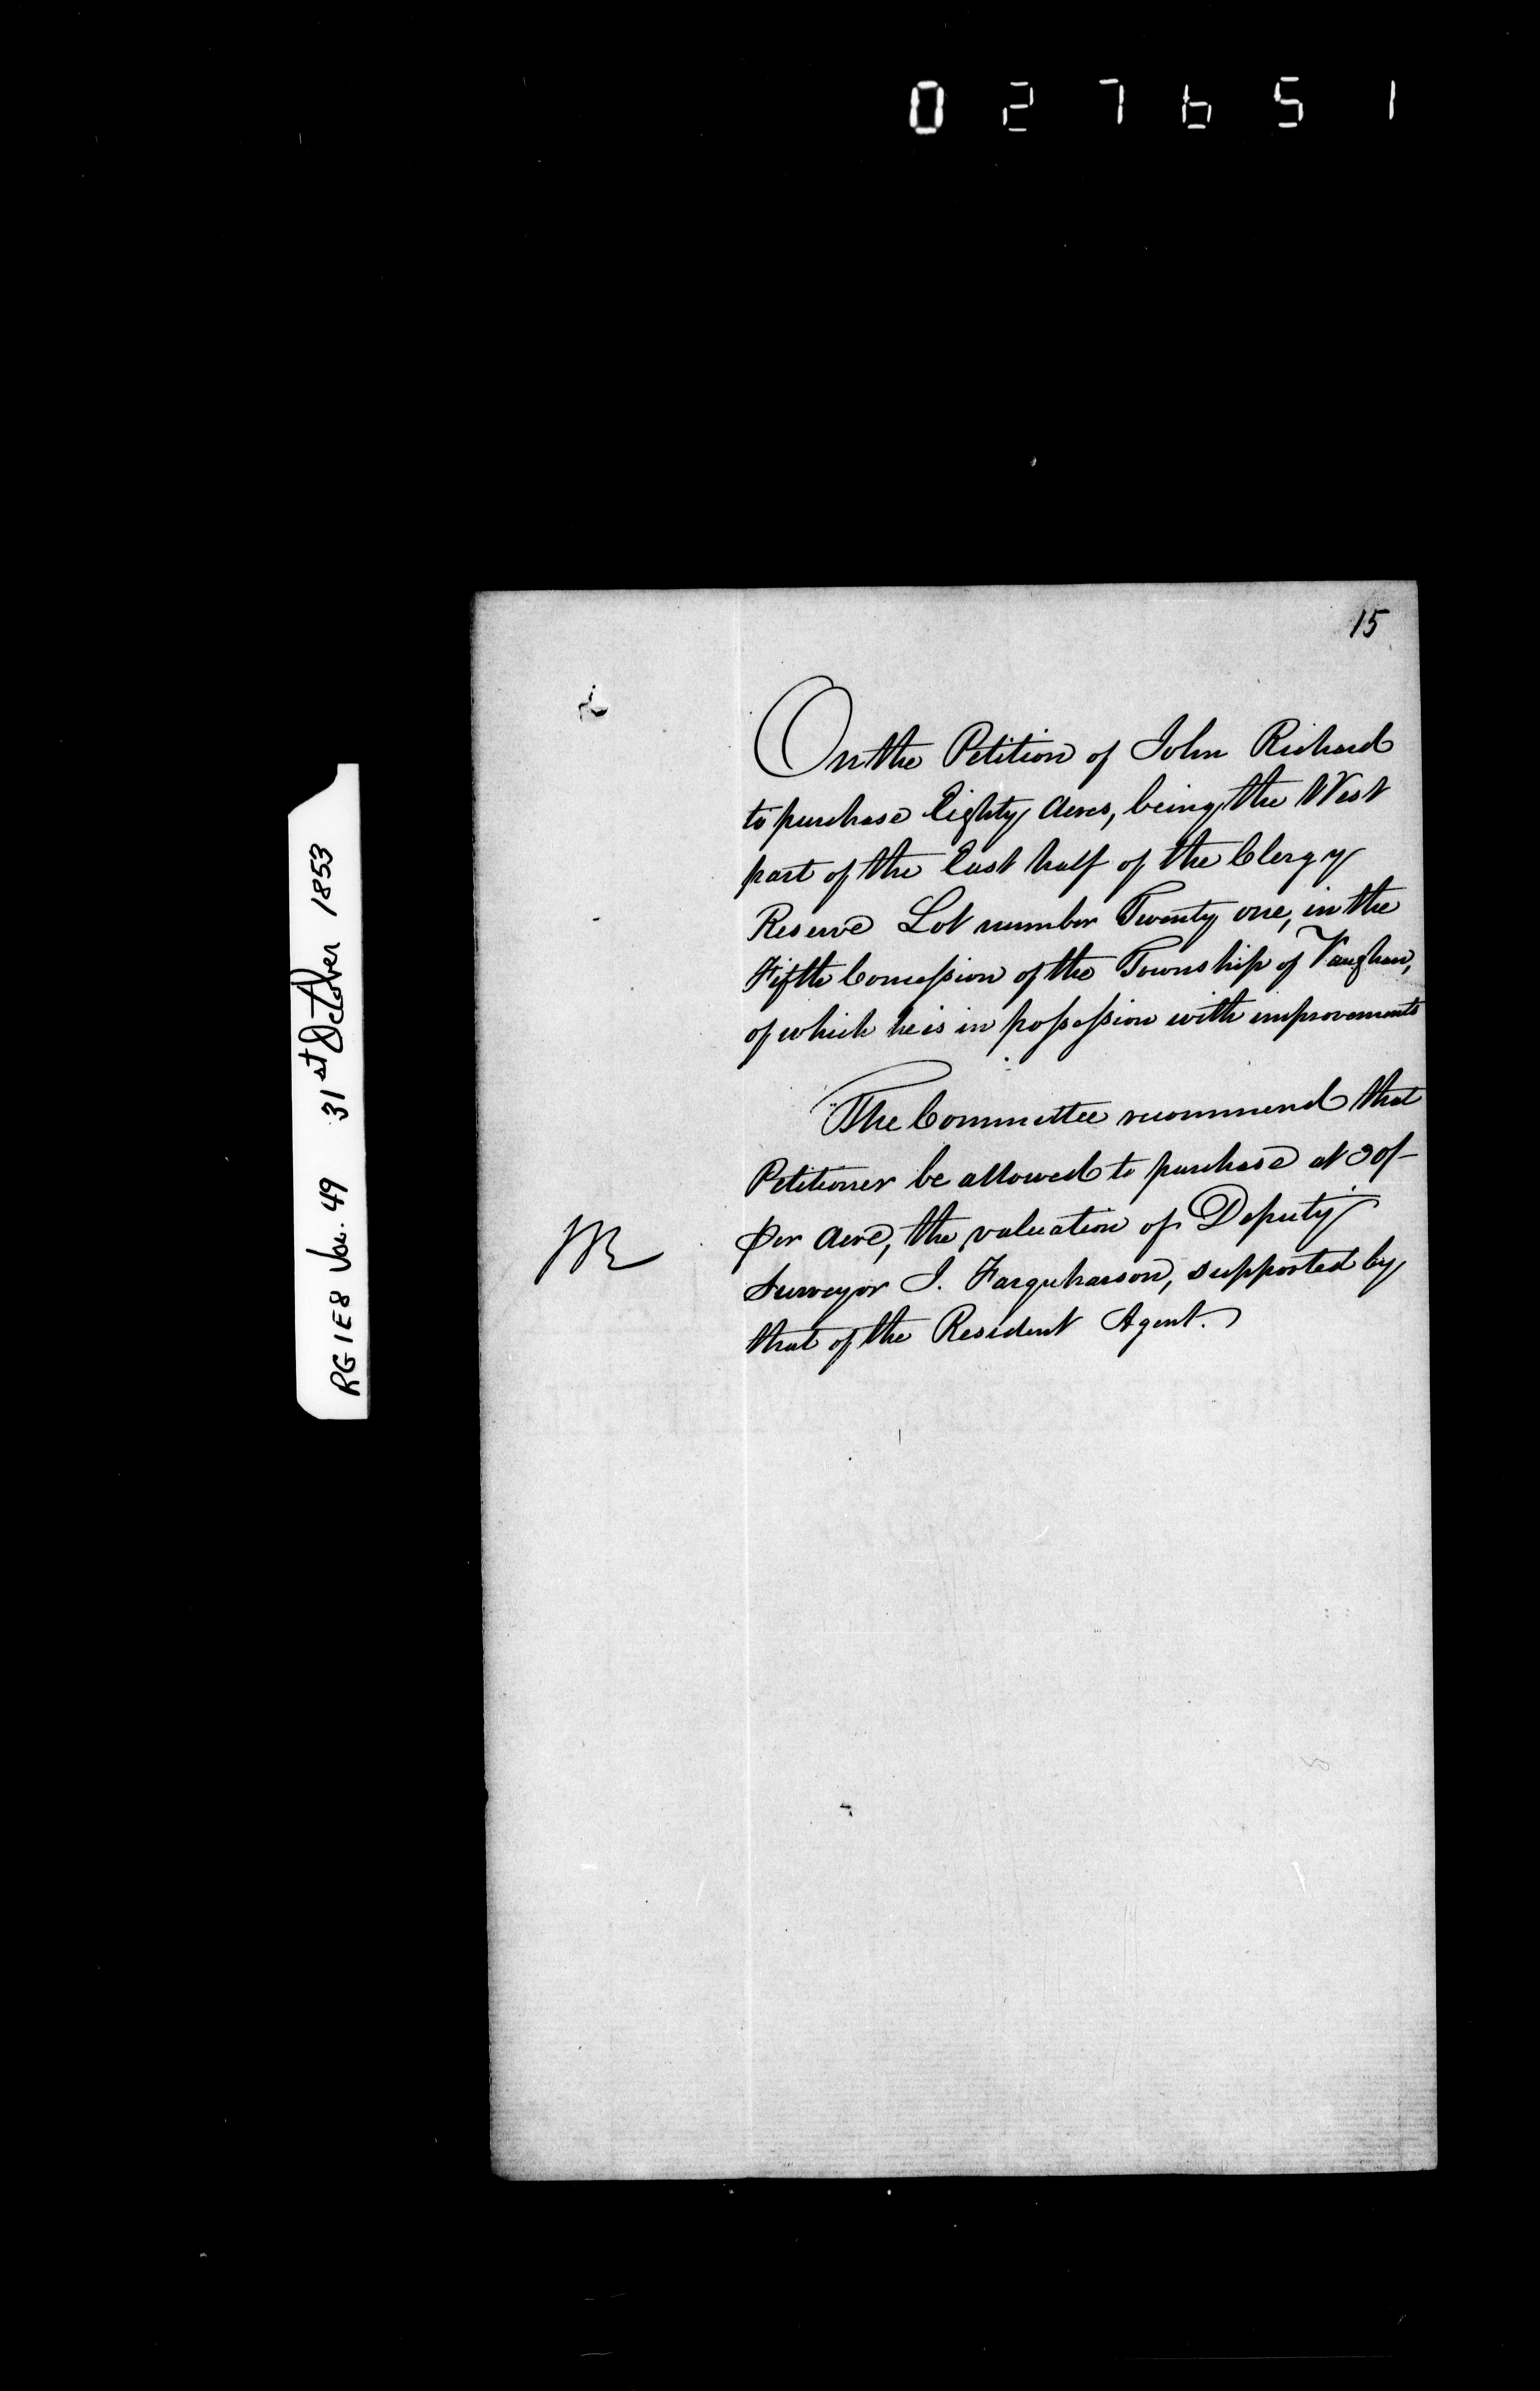 027651
15
On the Petition of John Richard
to purchase Eighty Acres, being the West
part of the East half of the Clergy
Reserve Lot number Twenty one, in the
Fifth Concession of the Township of Vaughan,
of which he is in possession with improvements
The Committee recommend that
Petitioner be allowed to purchase at
per Acre, the valuation of Deputy
Surveyor J. Farquharson, supported by
that of the Resident Agent.
RG 1 E8 Vol. 49 31st October 1853